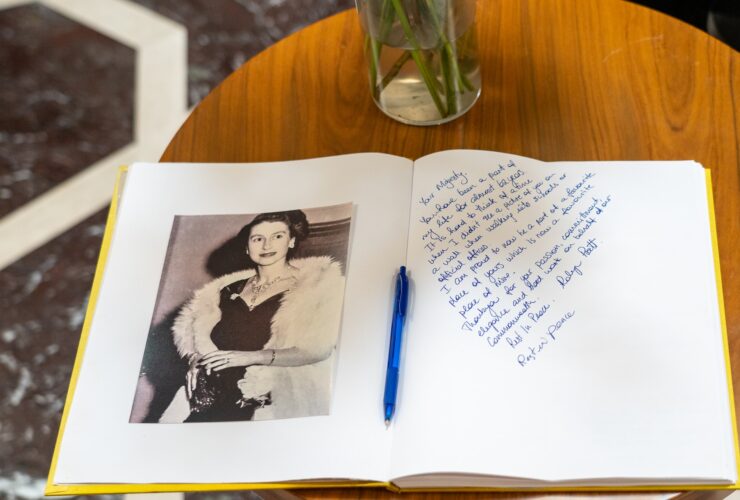 Your Majesty,
You have been a part of
my life for almost 62 years.
It is hard to think of a time
when I didn't see a picture of you on
a wall when walking into schools or
official offices.
I am proud to now be a part of a favourite
place of yours which is now a favourite
place of mine.
Thankyou for your passion, commitment,
elegance and good work on behalf of our
Commonwealth.
Rest In Peace. Robyn
Rest in Peace